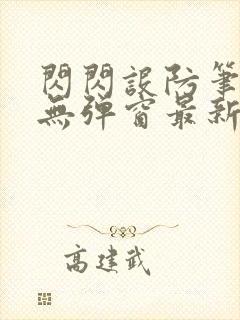 閃閃設防筆
無彈窗最新
高建武